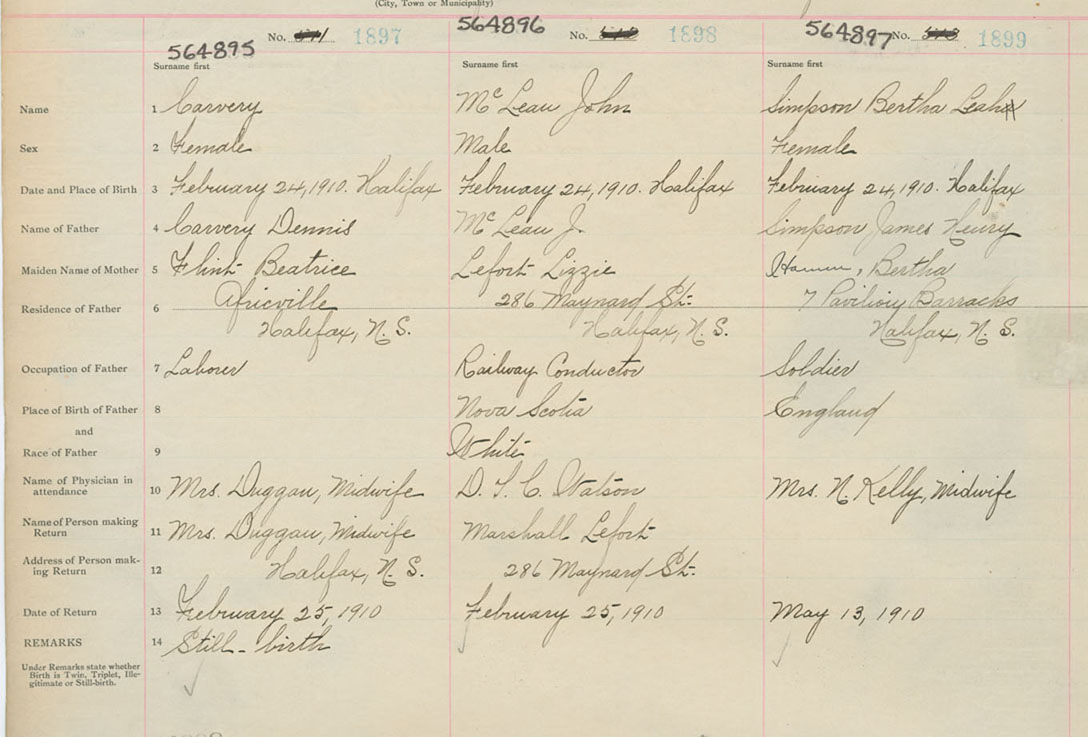 (City, Town or Municipality)
564895 No. 1897 564896 No. 1898 564897 No. 1899
Surname first Surname first Surname first
Name 1 Carvery McLean John Simpson Bertha Leah
Sex 2 Female Male Female
Date and Place of Birth 3 February 24, 1910. Halifax February 24, 1910. Halifax February 24, 1910. Halifax
Name of Father 4 Carvery Dennis McLean J. Simpson James Henry
Maiden Name of Mother 5 Flint Beatrice Lefort Lizzie , Bertha
Residence of Father 6 Africville 286 Maynard St. 7 Pavilion Barracks
Halifax, N.S. Halifax, N.S. Halifax, N.S.
Occupation of Father 7 Laborer Railway Conductor Soldier
Place of Birth of Father 8 Nova Scotia England
and
Race of Father 9 White
Name of Physician in
attendance 10 Mrs. Duggan, Midwife D. S. C. Watson Mrs. N. Kelly, Midwife
Name of Person making
Return 11 Mrs. Duggan, Midwife Marshall Lefort
Address of Person mak-
ing Return 12 Halifax, N.S. 286 Maynard St.
Date of Return 13 February 25, 1910 February 25, 1910 May 13, 1910
REMARKS 14 Still-birth
Under Remarks state whether
Birth is Twin, Triplet, Ille-
gitimate or Still-birth.